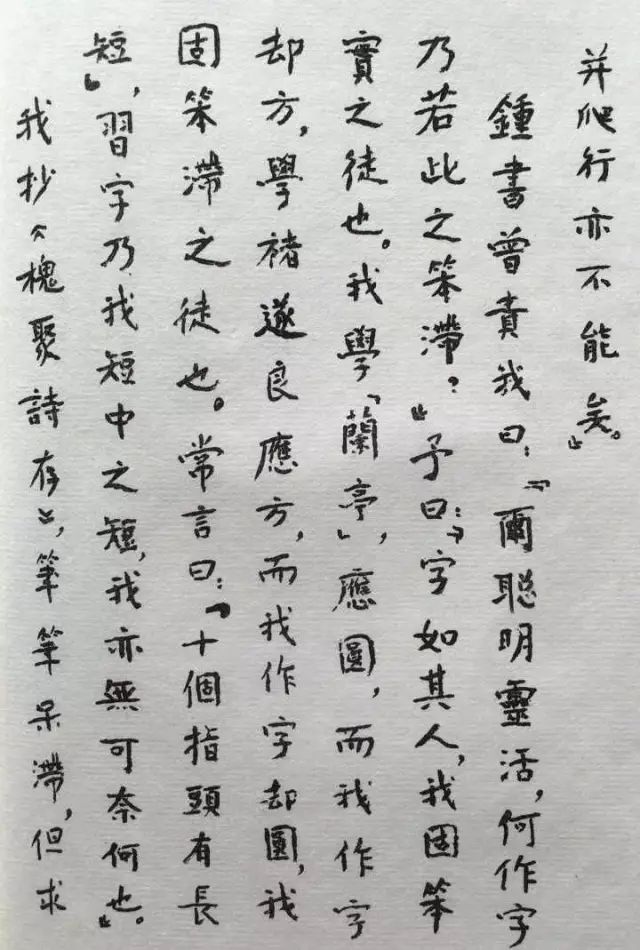 并爬行亦不能矣。』
鍾書曾責我曰：『爾聰明靈活，何作字
乃若此之笨滯？』予曰：『字如其人，我固笨
實之徒也。我學「蘭亭」，應圓，而我作字
却方，學褚遂良應方，而我作字却圓，我
固笨滯之徒也。常言曰：『十個指頭有長
短』，習字乃我短中之短，我亦無可奈何也。』
我抄《槐聚詩存》，筆筆呆滯，但求